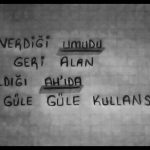 VERDİĞİ UMUDU
GERİ ALAN
ALDIĞI AH'IDA
GÜLE GÜLE KULLANS